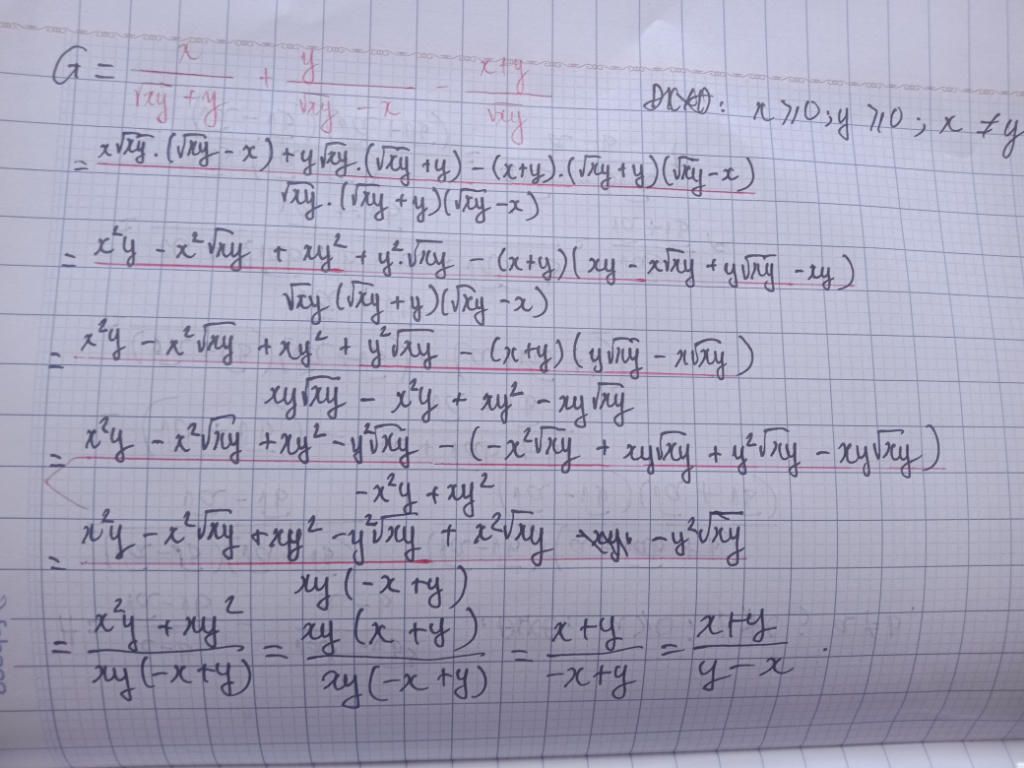 G = x/(√xy + y) + y/(√xy - x) - (x+y)/√xy ĐKXĐ: x ⩾ 0; y ⩾ 0; x ≠ y
= (x√xy.(√xy - x) + y√xy.(√xy + y) - (x+y).(√xy + y)(√xy - x))/(√xy.(√xy + y)(√xy - x))
= (x²y - x²√xy + xy² + y².√xy - (x+y)(xy - x√xy + y√xy - xy))/(√xy(√xy + y)(√xy - x))
= (x²y - x²√xy + xy² + y²√xy - (x+y)(y√xy - x√xy))/(xy√xy - x²y + xy² - xy√xy)
= (x²y - x²√xy + xy² - y²√xy - (-x²√xy + xy√xy + y²√xy - xy√xy))/(-x²y + xy²)
= (x²y - x²√xy + xy² - y²√xy + x²√xy - y²√xy)/(xy(-x + y))
= (x²y + xy²)/(xy(-x + y)) = (xy(x + y))/(xy(-x + y)) = (x+y)/(-x+y) = (x+y)/(y-x).